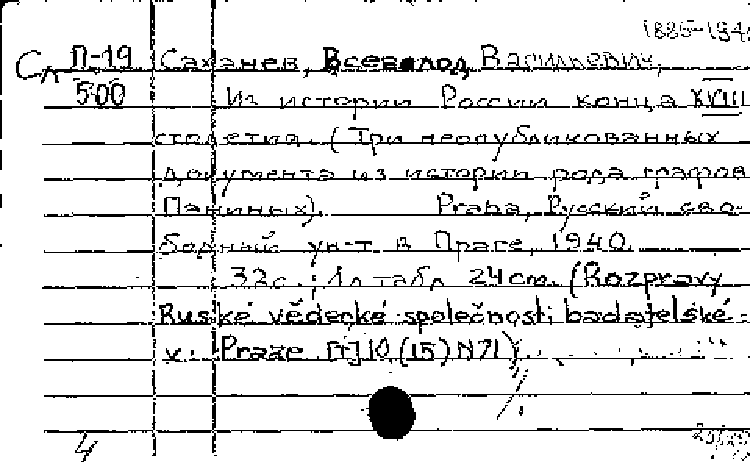 1885-194
Сл П-19 Саханев, Всеволод Васильевич,
500 Из истории России конца XVIII
столетия. (Три неопубликованных
документа из истории рода графов
Паниных). Praha, Русский сво-
бодный ун-т в Праге, 1940.
32с.; 1л табл 24cm. (Rozpravy
Ruské vědecké společnosti badatelské
v. Praze [т] 10 (15) N71)
4